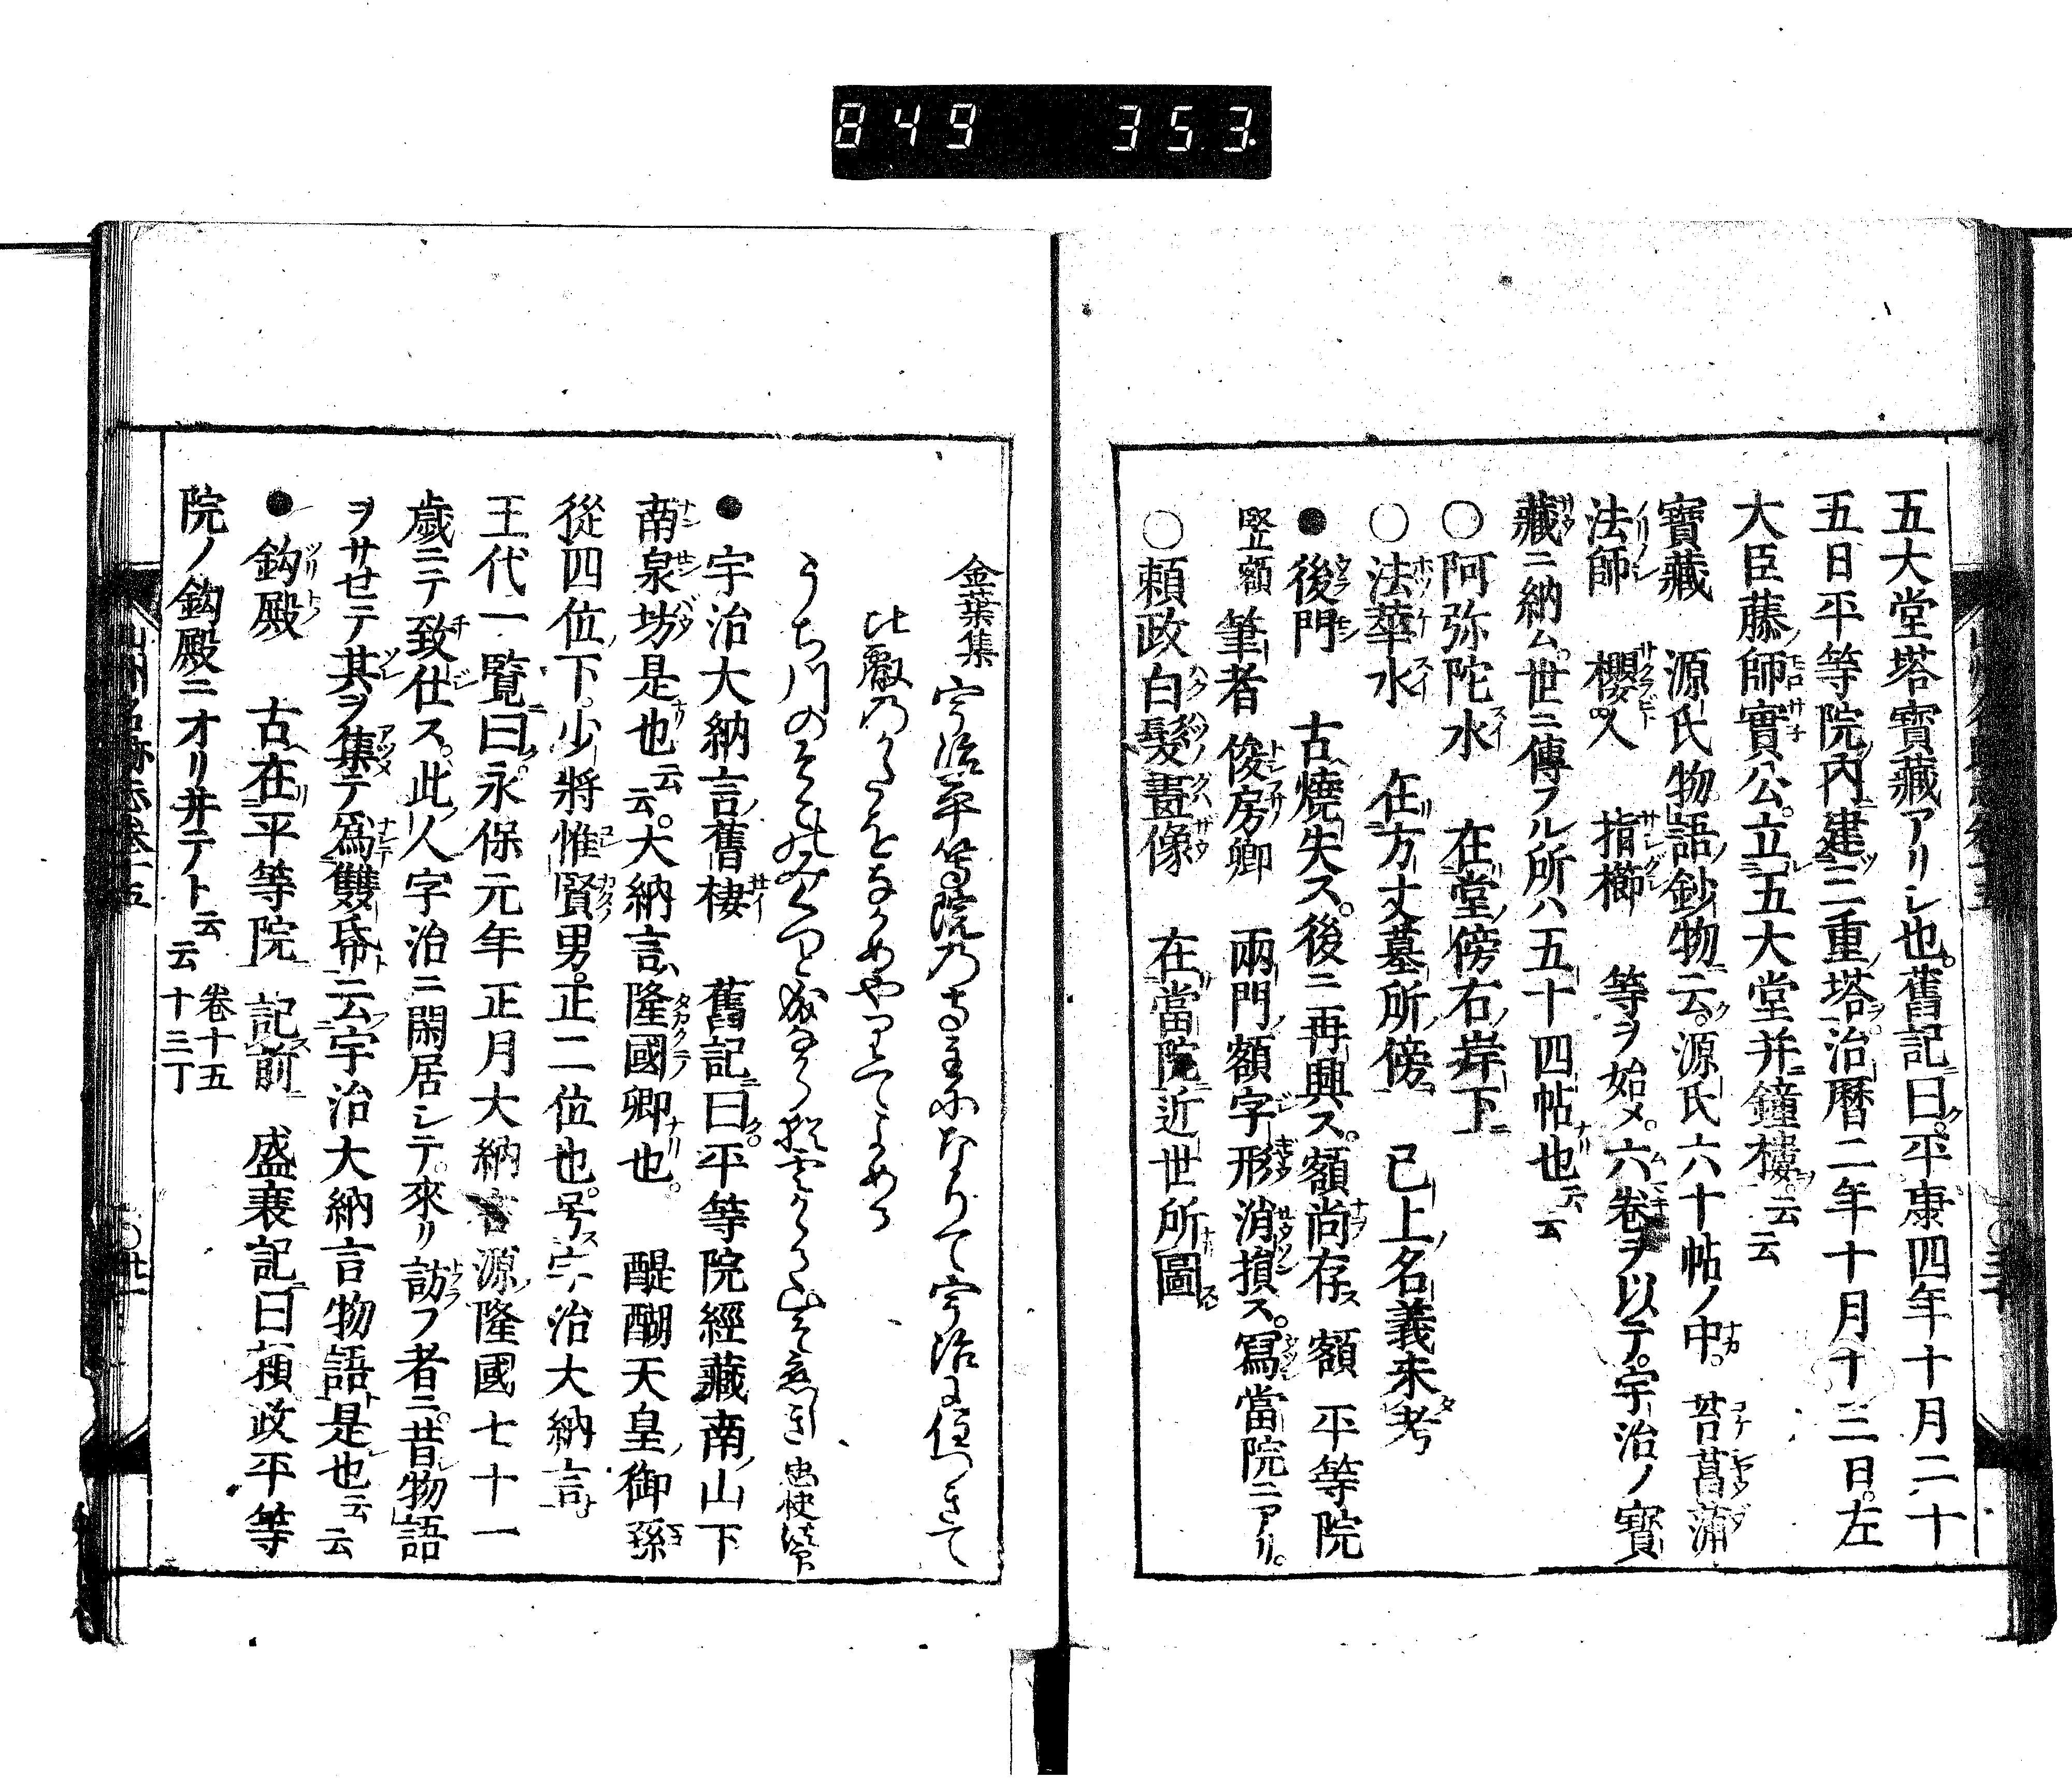 849 353.
五大堂塔寶藏アリシ也。舊記曰。平康四年十月二十
五日平等院內建三重塔治曆二年十月十三日。左
大臣藤師實公。立五大堂并鐘樓。云云
寶藏 源氏物語鈔物云。源氏六十帖ノ中。苔菖蒲
法師 櫻人 指櫛 等ヲ始メ。六卷ヲ以テ。宇治ノ寶
藏ニ納ム。世ニ傳フル所ハ五十四帖也云云
○阿弥陀水 在堂傍右岸下
○法華水 在方丈墓所傍 已上名義未考
●後門 古燒失ス。後ニ再興ス。額尚存ス 額 平等院
竪額 筆者 俊房卿 兩門額字形消損ス。寫當院ニアリ。
○頼政白髮畫像 在當院近世所圖
金葉集 宇治平等院乃寺主になりて宇治に住つきて
比叡乃かたをなかめやりてよめる
うち川のそこのみくつと成なから猶雲かゝる山そ恋しき 忠快法師
●宇治大納言舊棲 舊記曰。平等院經藏南山下
南泉坊是也云云。大納言隆國卿也。 醍醐天皇御孫
從四位下。少將惟賢男。正二位也。号宇治大納言
王代一覽曰。永保元年正月大納言源隆國七十一
歲ニテ致仕ス。此人宇治ニ閑居シテ。來リ訪フ者ニ。昔物語
ヲサセテ其ヲ集テ爲雙帋云宇治大納言物語是也云云
●鈎殿 古在平等院 記前 盛衰記曰頼政平等
院ノ鈎殿ニオリ井テト云云 卷十五十三丁
山州名跡志卷十五 ○廿一